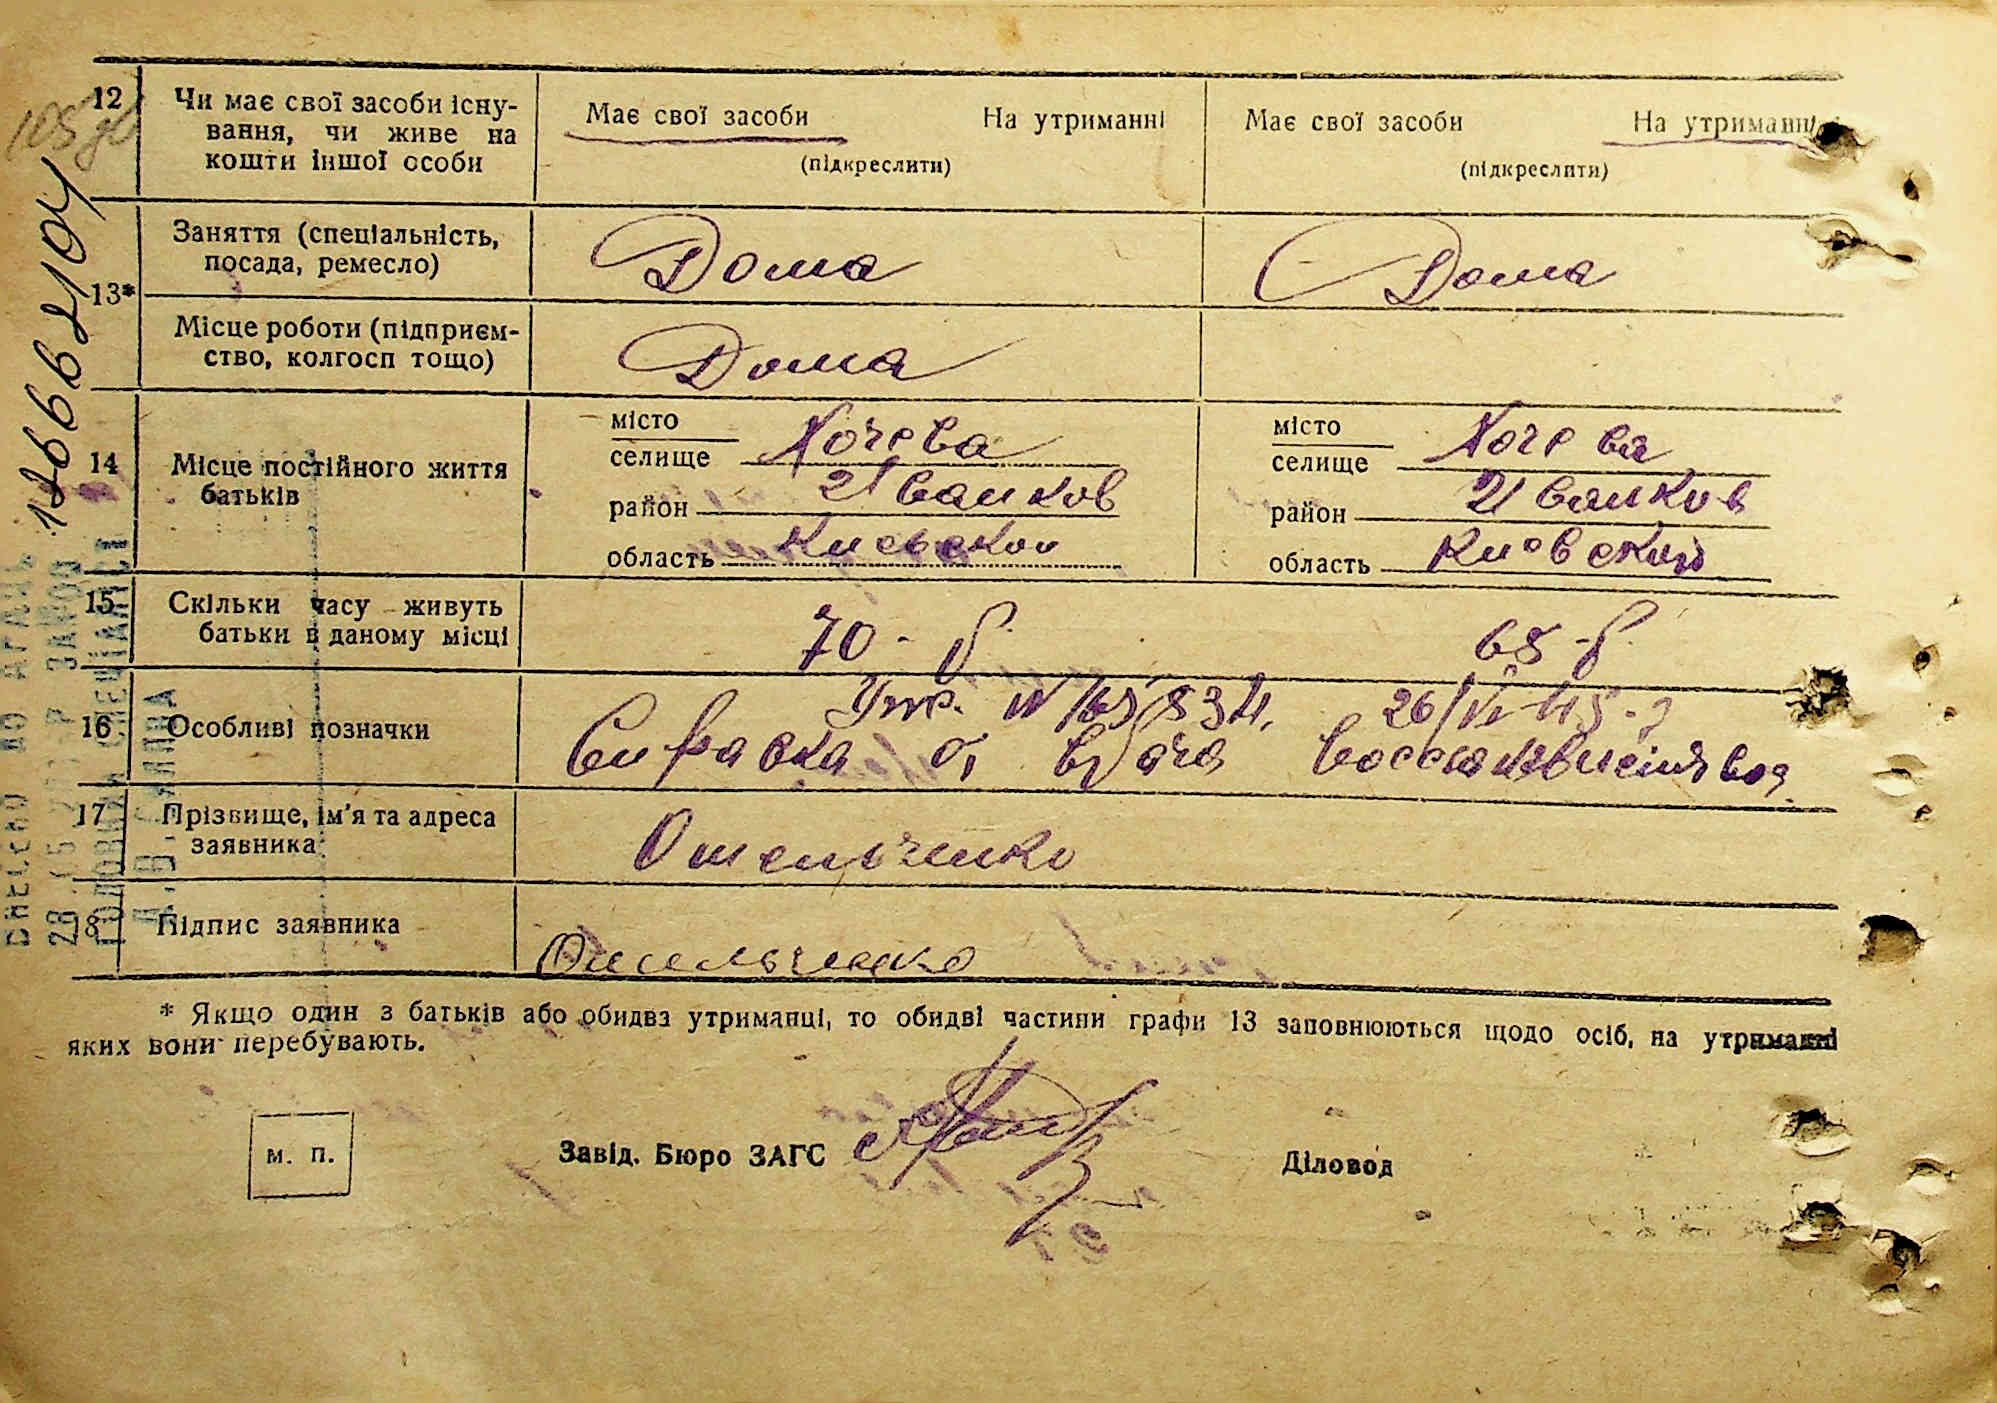 12
Чи має свої засоби існу-
вання, чи живе на
кошти іншої особи
Має свої засоби На утриманні
(підкреслити)
Має свої засоби На утриманні
(підкреслити)
13*
Заняття (спеціальність,
посада, ремесло)
Дома
Дома
Місце роботи (підприєм-
ство, колгосп тощо)
Дома
14
Місце постійного життя
батьків
місто
селище Хочева
район Иванков
область Киевской
місто
селище Хочева
район Иванков
область Киевской
15
Скільки часу живуть
батьки в даному місці
70
65
16
Особливі позначки
Справка от врача
17
Прізвище, ім'я та адреса
заявника
Омельченко
18
Підпис заявника
Омельченко
* Якщо один з батьків або обидва утриманці, то обидві частини графи 13 заповнюються щодо осіб, на утриманні
яких вони перебувають.
м. п.
Завід. Бюро ЗАГС
Діловод